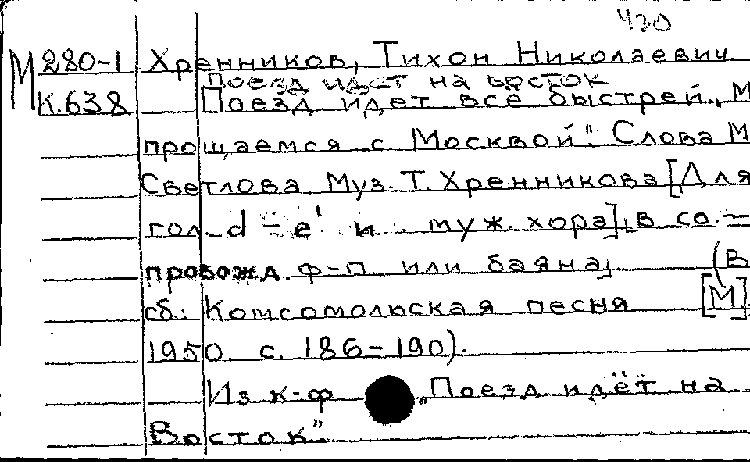 430
М 280-1 Хренников, Тихон Николаевич
Поезд идет на восток
К.638 „Поезд идет всё быстрей, м
прощаемся с Москвой". Слова М
Светлова Муз. Т. Хренникова [Для
гол. d - e' и муж. хора], в со-
провожд. ф-п или баяна, (В
сб.: Комсомольская песня [М]
1950 с. 186-190).
Из к-ф „Поезд идёт на
Восток"